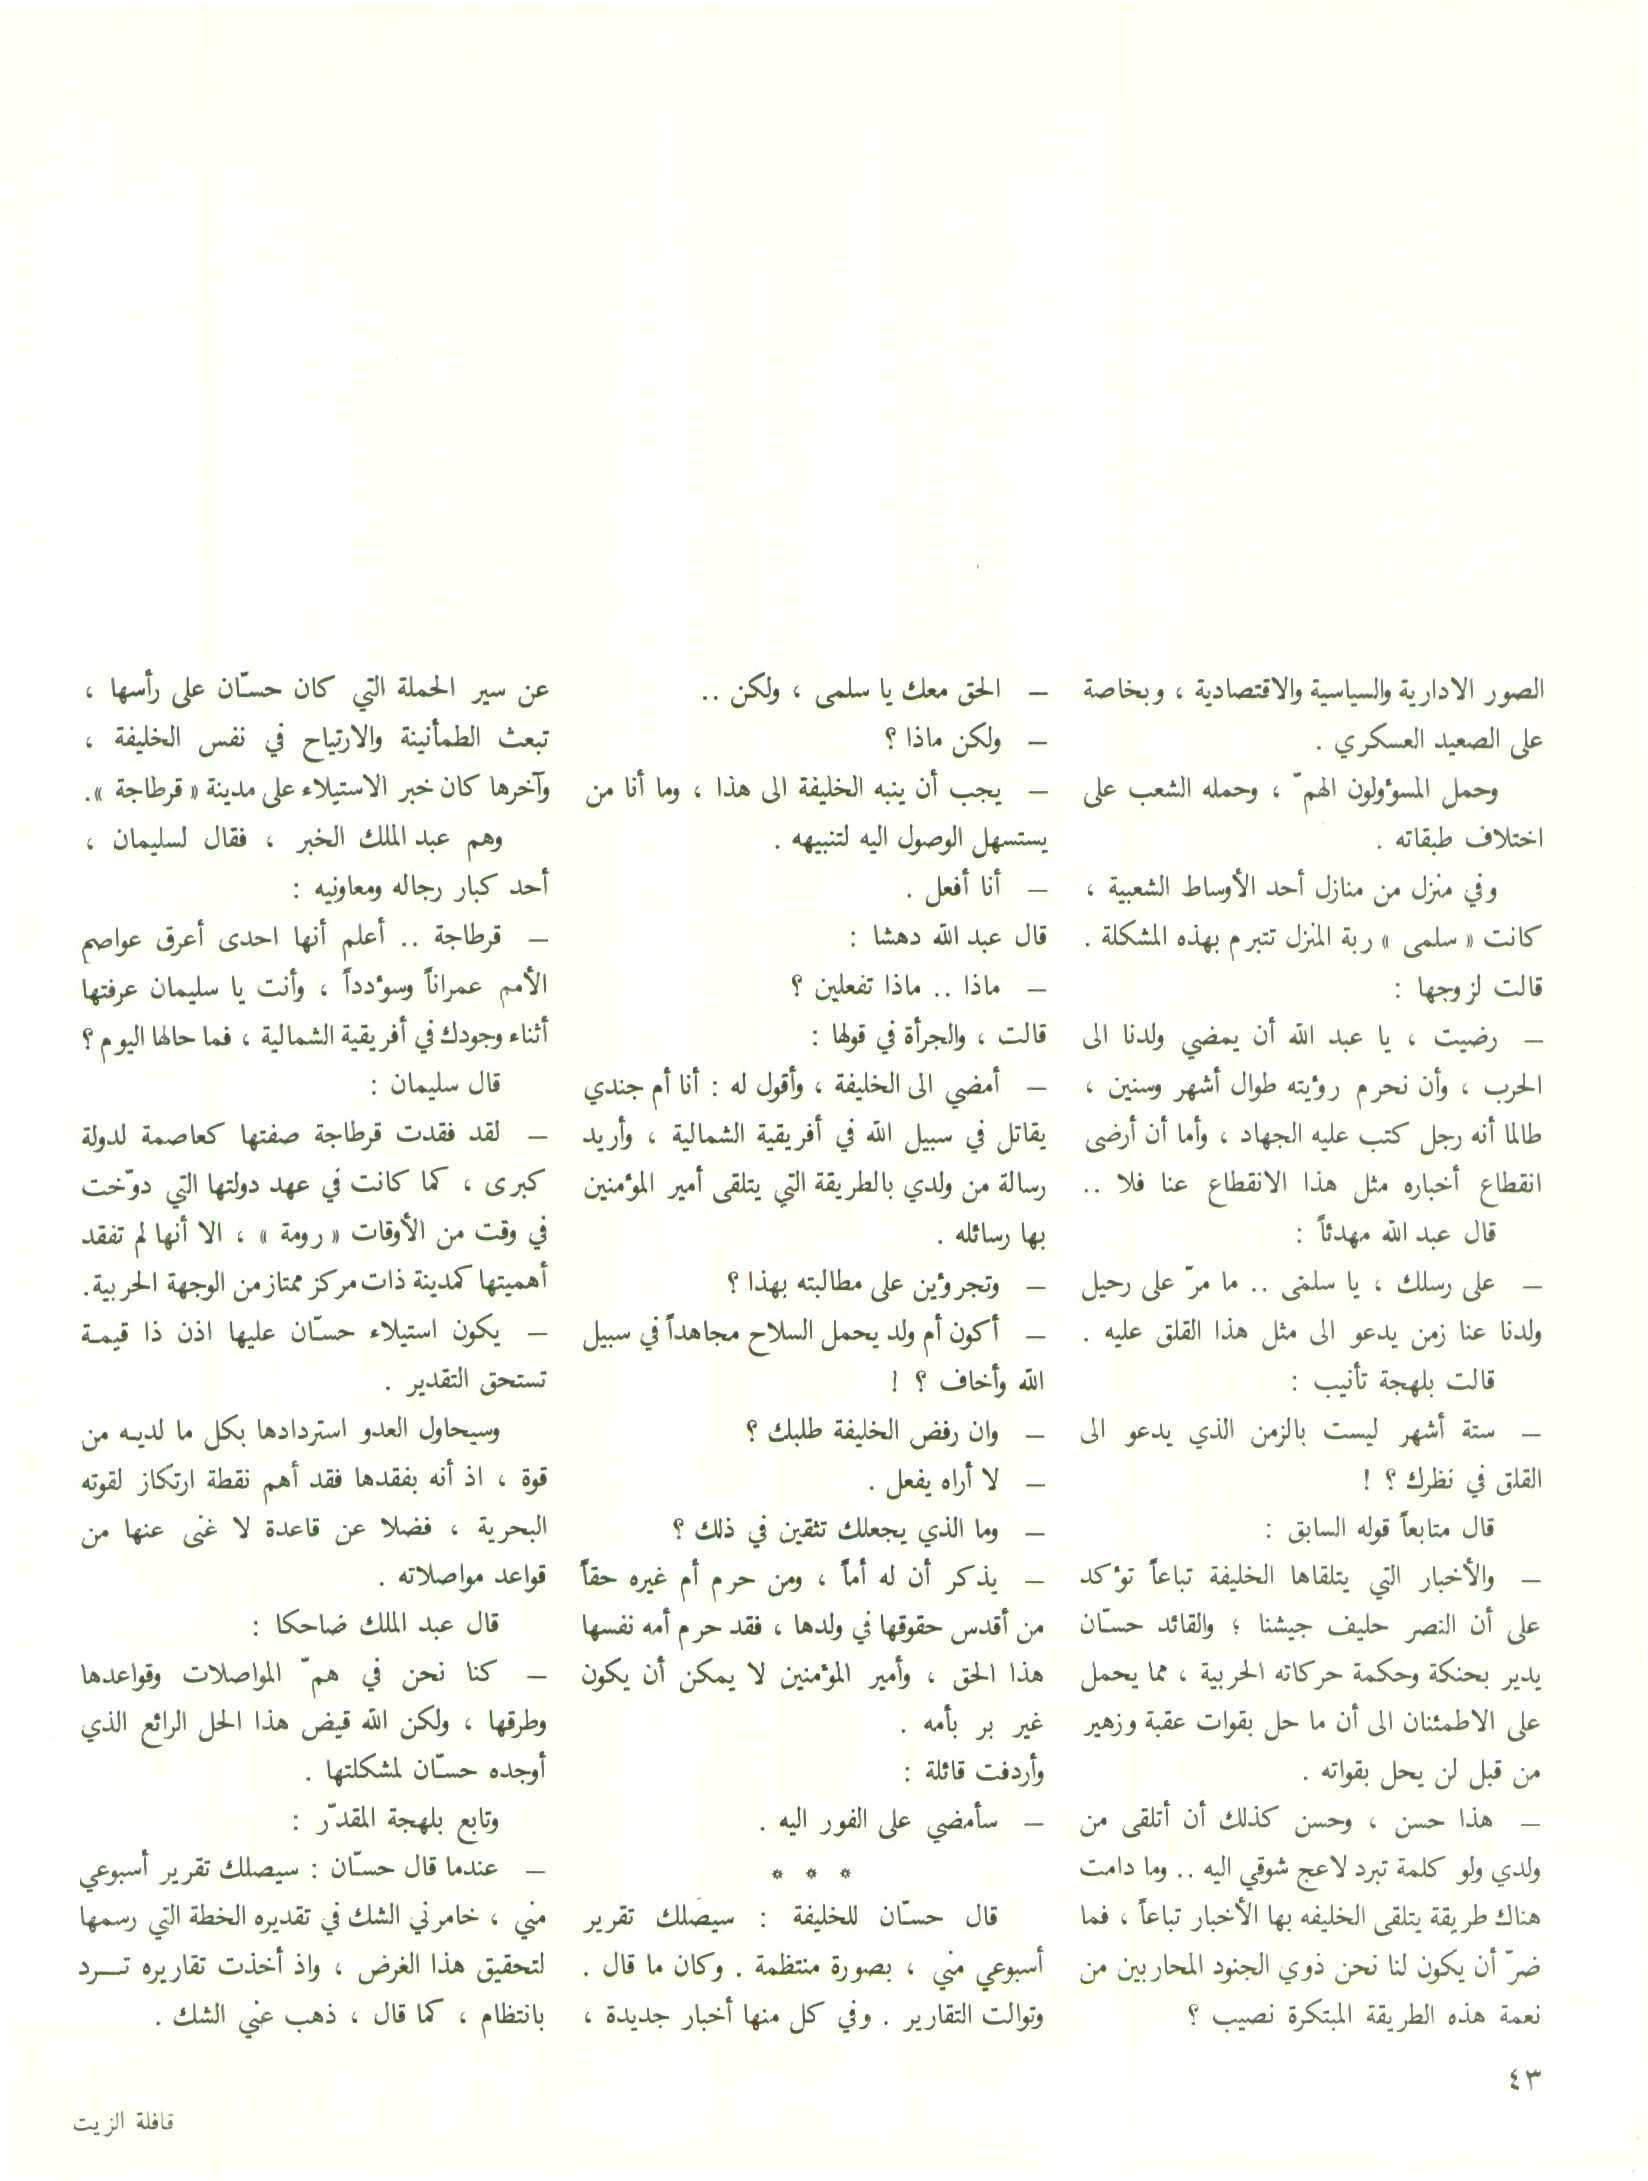 الصور الادارية والسياسية والاقتصادية ، وبخاصة
على الصعيد العسكري .
وحمل المسؤولون الهمّ ، وحمله الشعب على
اختلاف طبقاته .
وفي منزل من منازل أحد الأوساط الشعبية ،
كانت « سلمى » ربة المنزل تتبرم بهذه المشكلة .
قالت لزوجها :
— رضيت ، يا عبد الله أن يمضي ولدنا الى
الحرب ، وأن نحرم رؤيته طوال أشهر وسنين ،
طالما أنه رجل كتب عليه الجهاد ، وأما أن أرضى
انقطاع أخباره مثل هذا الانقطاع عنا فلا ..
قال عبد الله مهدئاً :
— على رسلك ، يا سلمى .. ما مرّ على رحيل
ولدنا عنا زمن يدعو الى مثل هذا القلق عليه .
قالت بلهجة تأنيب :
— ستة أشهر ليست بالزمن الذي يدعو الى
القلق في نظرك ؟ !
قال متابعاً قوله السابق :
— والأخبار التي يتلقاها الخليفة تباعاً تؤكد
على أن النصر حليف جيشنا ؛ والقائد حسّان
يدير بحنكة وحكمة حركاته الحربية ، مما يحمل
على الاطمئنان الى أن ما حل بقوات عقبة وزهير
من قبل لن يحل بقواته .
— هذا حسن ، وحسن كذلك أن أتلقى من
ولدي ولو كلمة تبرد لاعج شوقي اليه .. وما دامت
هناك طريقة يتلقى الخليفه بها الأخبار تباعاً ، فما
ضرّ أن يكون لنا نحن ذوي الجنود المحاربين من
نعمة هذه الطريقة المبتكرة نصيب ؟
— الحق معك يا سلمى ، ولكن ..
— ولكن ماذا ؟
— يجب أن ينبه الخليفة الى هذا ، وما أنا من
يستسهل الوصول اليه لتنبيهه .
— أنا أفعل .
قال عبد الله دهشا :
— ماذا .. ماذا تفعلين ؟
قالت ، والجرأة في قولها :
— أمضي الى الخليفة ، وأقول له : أنا أم جندي
يقاتل في سبيل الله في أفريقية الشمالية ، وأريد
رسالة من ولدي بالطريقة التي يتلقى أمير المؤمنين
بها رسائله .
— وتجرؤين على مطالبته بهذا ؟
— أكون أم ولد يحمل السلاح مجاهداً في سبيل
الله وأخاف ؟ !
— وان رفض الخليفة طلبك ؟
— لا أراه يفعل .
— وما الذي يجعلك تثقين في ذلك ؟
— يذكر أن له أماً ، ومن حرم أم غيره حقاً
من أقدس حقوقها في ولدها ، فقد حرم أمه نفسها
هذا الحق ، وأمير المؤمنين لا يمكن أن يكون
غير بر بأمه .
وأردفت قائلة :
— سأمضي على الفور اليه .
* * *
قال حسّان للخليفة : سيصلك تقرير
أسبوعي مني ، بصورة منتظمة . وكان ما قال .
وتوالت التقارير . وفي كل منها أخبار جديدة ،
عن سير الحملة التي كان حسّان على رأسها ،
تبعث الطمأنينة والارتياح في نفس الخليفة ،
وآخرها كان خبر الاستيلاء على مدينة « قرطاجة ».
وهم عبد الملك الخبر ، فقال لسليمان ،
أحد كبار رجاله ومعاونيه :
— قرطاجة .. أعلم أنها احدى أعرق عواصم
الأمم عمراناً وسؤدداً ، وأنت يا سليمان عرفتها
أثناء وجودك في أفريقية الشمالية ، فما حالها اليوم ؟
قال سليمان :
— لقد فقدت قرطاجة صفتها كعاصمة لدولة
كبرى ، كما كانت في عهد دولتها التي دوّخت
في وقت من الأوقات « رومة » ، الا أنها لم تفقد
أهميتها كمدينة ذات مركز ممتاز من الوجهة الحربية.
— يكون استيلاء حسّان عليها اذن ذا قيمة
تستحق التقدير .
وسيحاول العدو استردادها بكل ما لديه من
قوة ، اذ أنه بفقدها فقد أهم نقطة ارتكاز لقوته
البحرية ، فضلا عن قاعدة لا غنى عنها من
قواعد مواصلاته .
قال عبد الملك ضاحكا :
— كنا نحن في همّ المواصلات وقواعدها
وطرقها ، ولكن الله قيض هذا الحل الرائع الذي
أوجده حسّان لمشكلتها .
وتابع بلهجة المقدّر :
— عندما قال حسّان : سيصلك تقرير أسبوعي
مني ، خامرني الشك في تقديره الخطة التي رسمها
لتحقيق هذا الغرض ، واذ أخذت تقاريره تـــرد
بانتظام ، كما قال ، ذهب عني الشك .
٤٣
قافلة الزيت